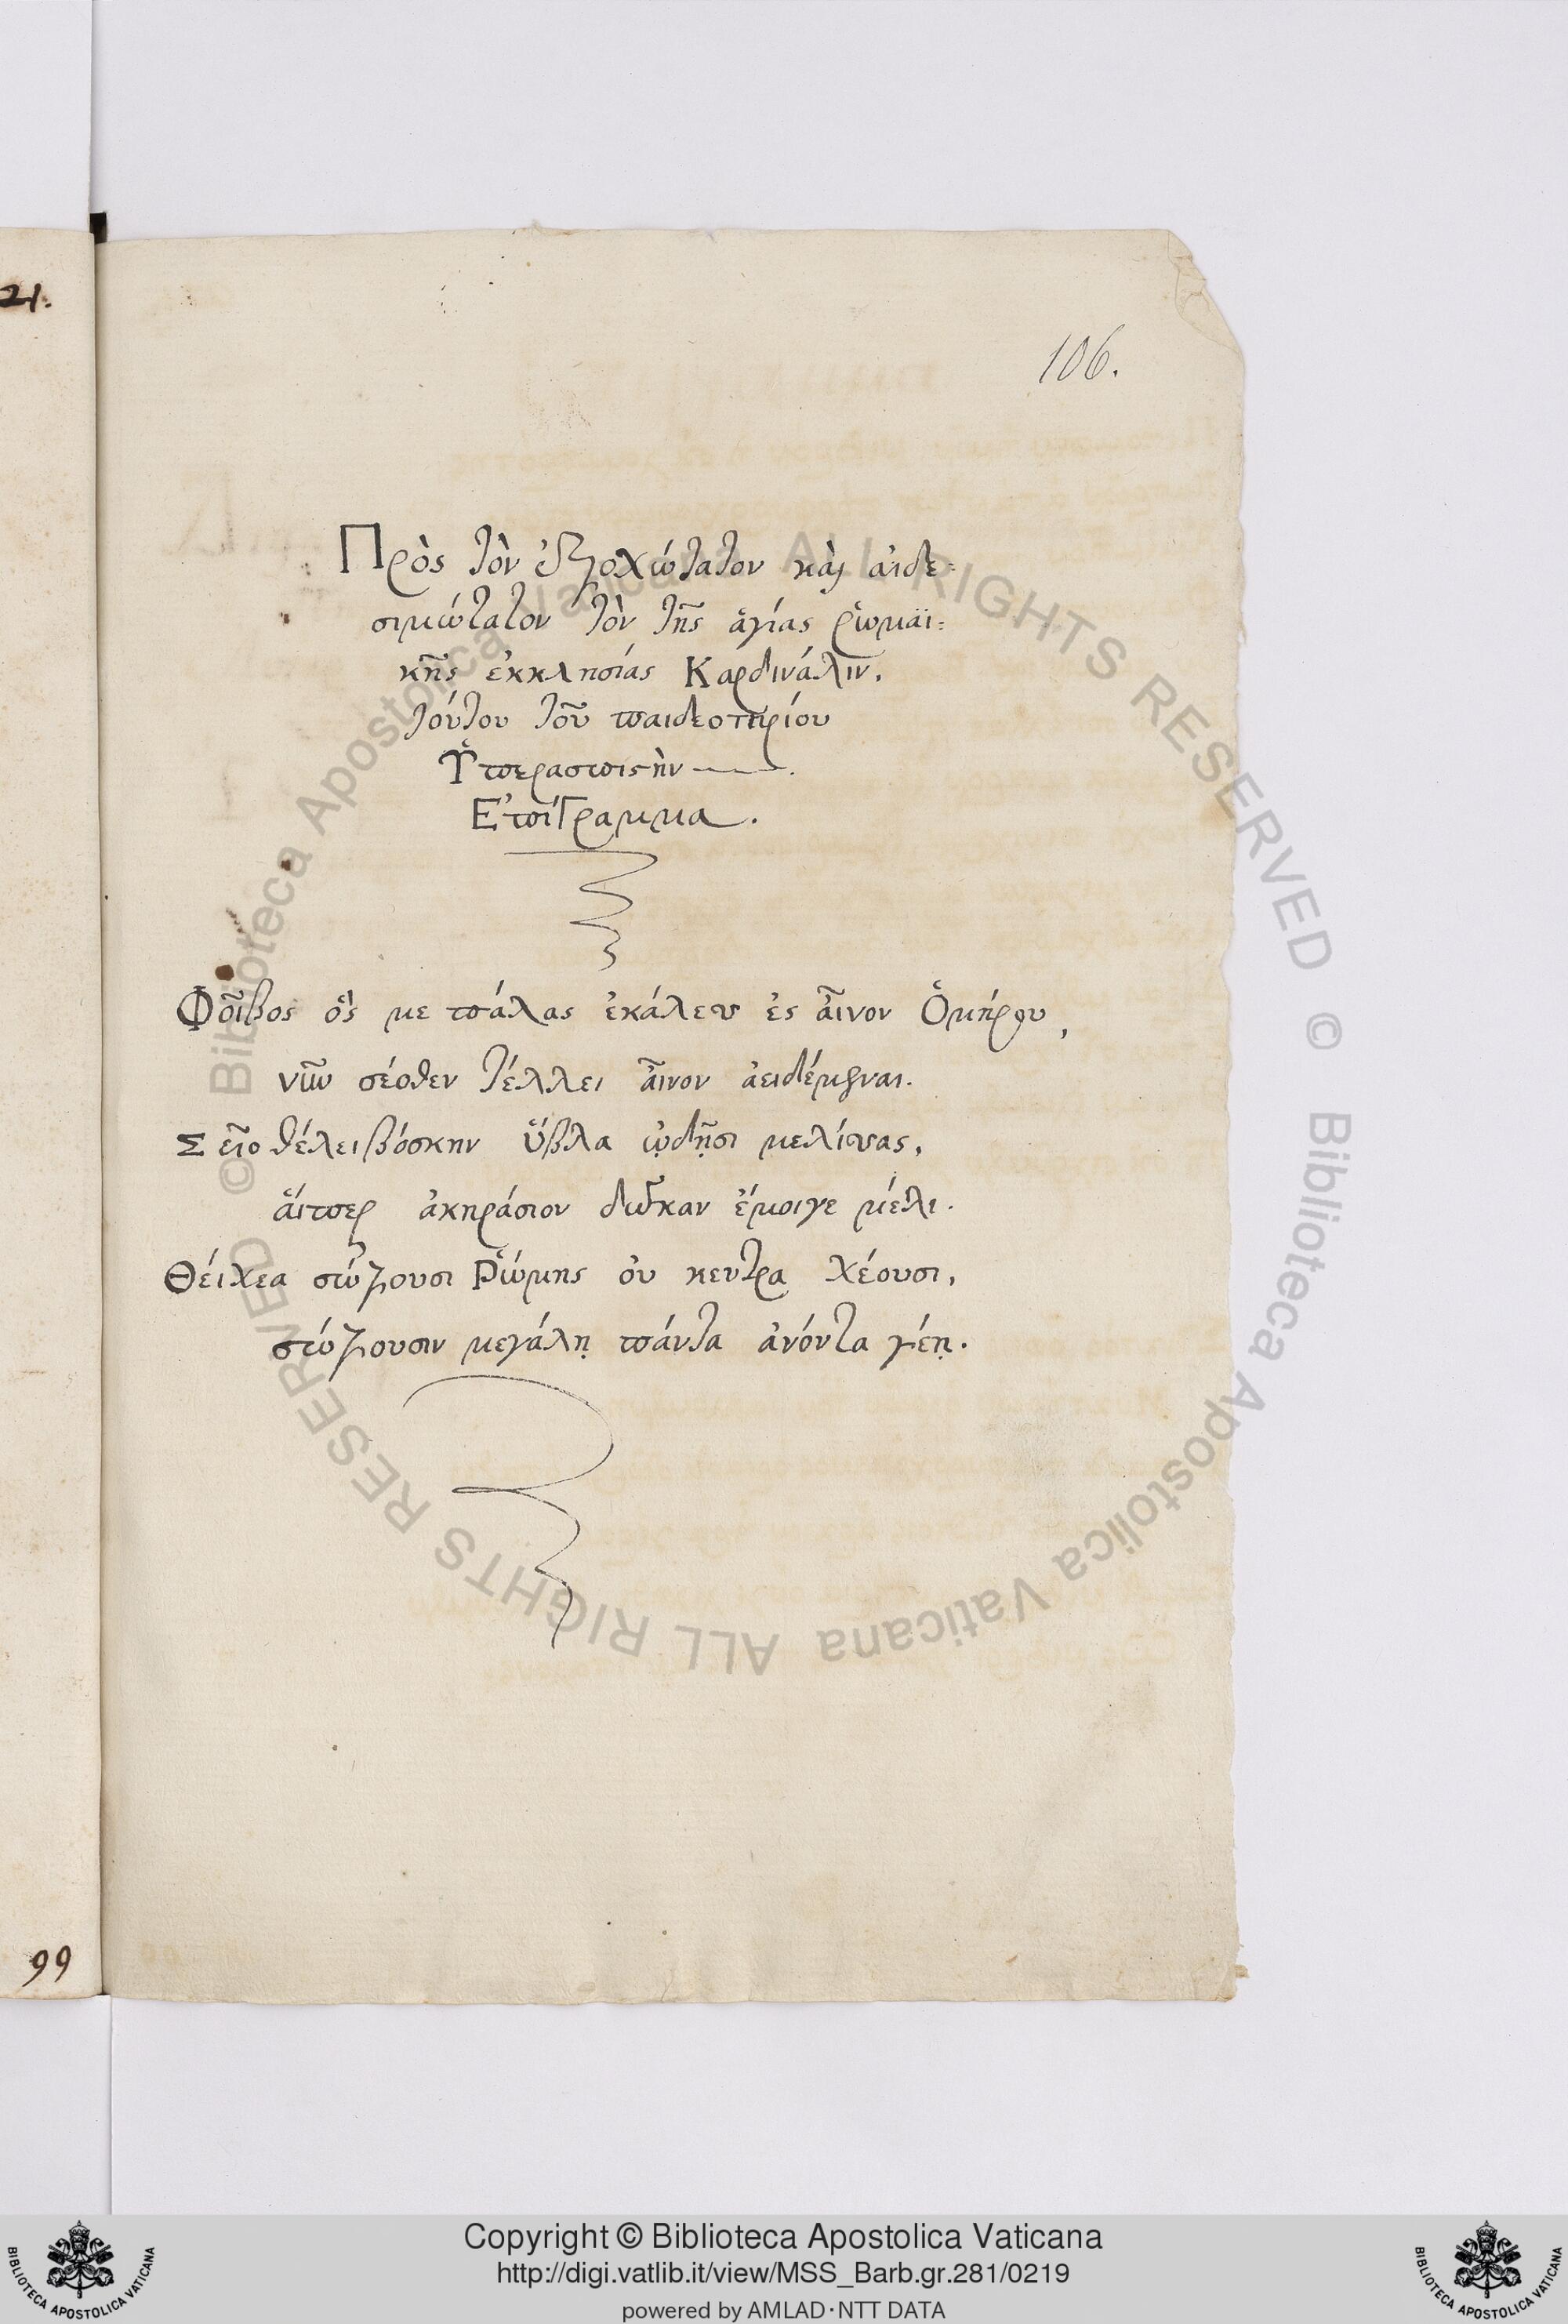 21.
106.
Πρὸς τὸν ἐξοχώτατον καὶ αἰδε=
σιμώτατον τὸν τῆς ἁγίας ῥωμαϊ=
κῆς ἐκκλησίας Καρδινάλιν,
τούτου τοῦ παιδεοτηρίου
Ὑπερασπιστὴν
Ἐπίγραμμα.
Φοῖβος ὅς με πάλας ἐκάλευ ἐς αἶνον Ὁμήρου,
νῦν σέοθεν τέλλει αἶνον ἀειδέμεναι.
Σεῖο θέλει βόσκην ὕβλα ᾠδῆσι μελίσσας,
αἵπερ ἀκηράσιον δῶκαν ἔμοιγε μέλι.
Θείχεα σώζουσι Ῥώμης οὐ κεντρα χέουσι,
σώζουσιν μεγάλη πάντα ἀνόντα γέῃ.
99
© Biblioteca Apostolica Vaticana ALL RIGHTS RESERVED
© Biblioteca Apostolica Vaticana ALL RIGHTS RESERVED
Copyright © Biblioteca Apostolica Vaticana
http://digi.vatlib.it/view/MSS_Barb.gr.281/0219
powered by AMLAD·NTT DATA
BIBLIOTECA APOSTOLICA VATICANA
BIBLIOTECA APOSTOLICA VATICANA